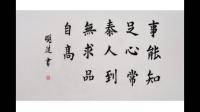 事能知
足心常
泰人到
無求品
自高
書